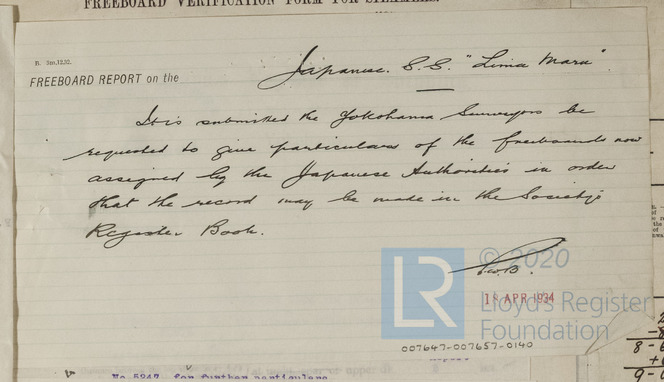 FREEBOARD VERIFICATION FORM FOR STEAMERS.
R. 3m,12,32.
FREEBOARD REPORT on the Japanese. S.S. "Lima Maru"
It is submitted the Yokohama Surveyors be
requested to give particulars of the freeboards now
assigned by the Japanese Authorities in order
that the record may be made in the Society's
Register Book.
LR
© 2020
APR 1934
Lloyd's Register
Foundation
007647-007657-0140
8 -
9 -
No 5247 for further particulars